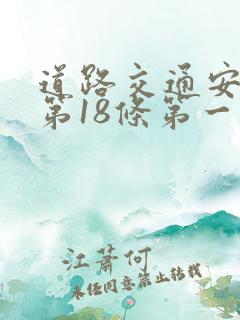 道路交通安
第18條第一
江蕭何
未經同意禁止轉載